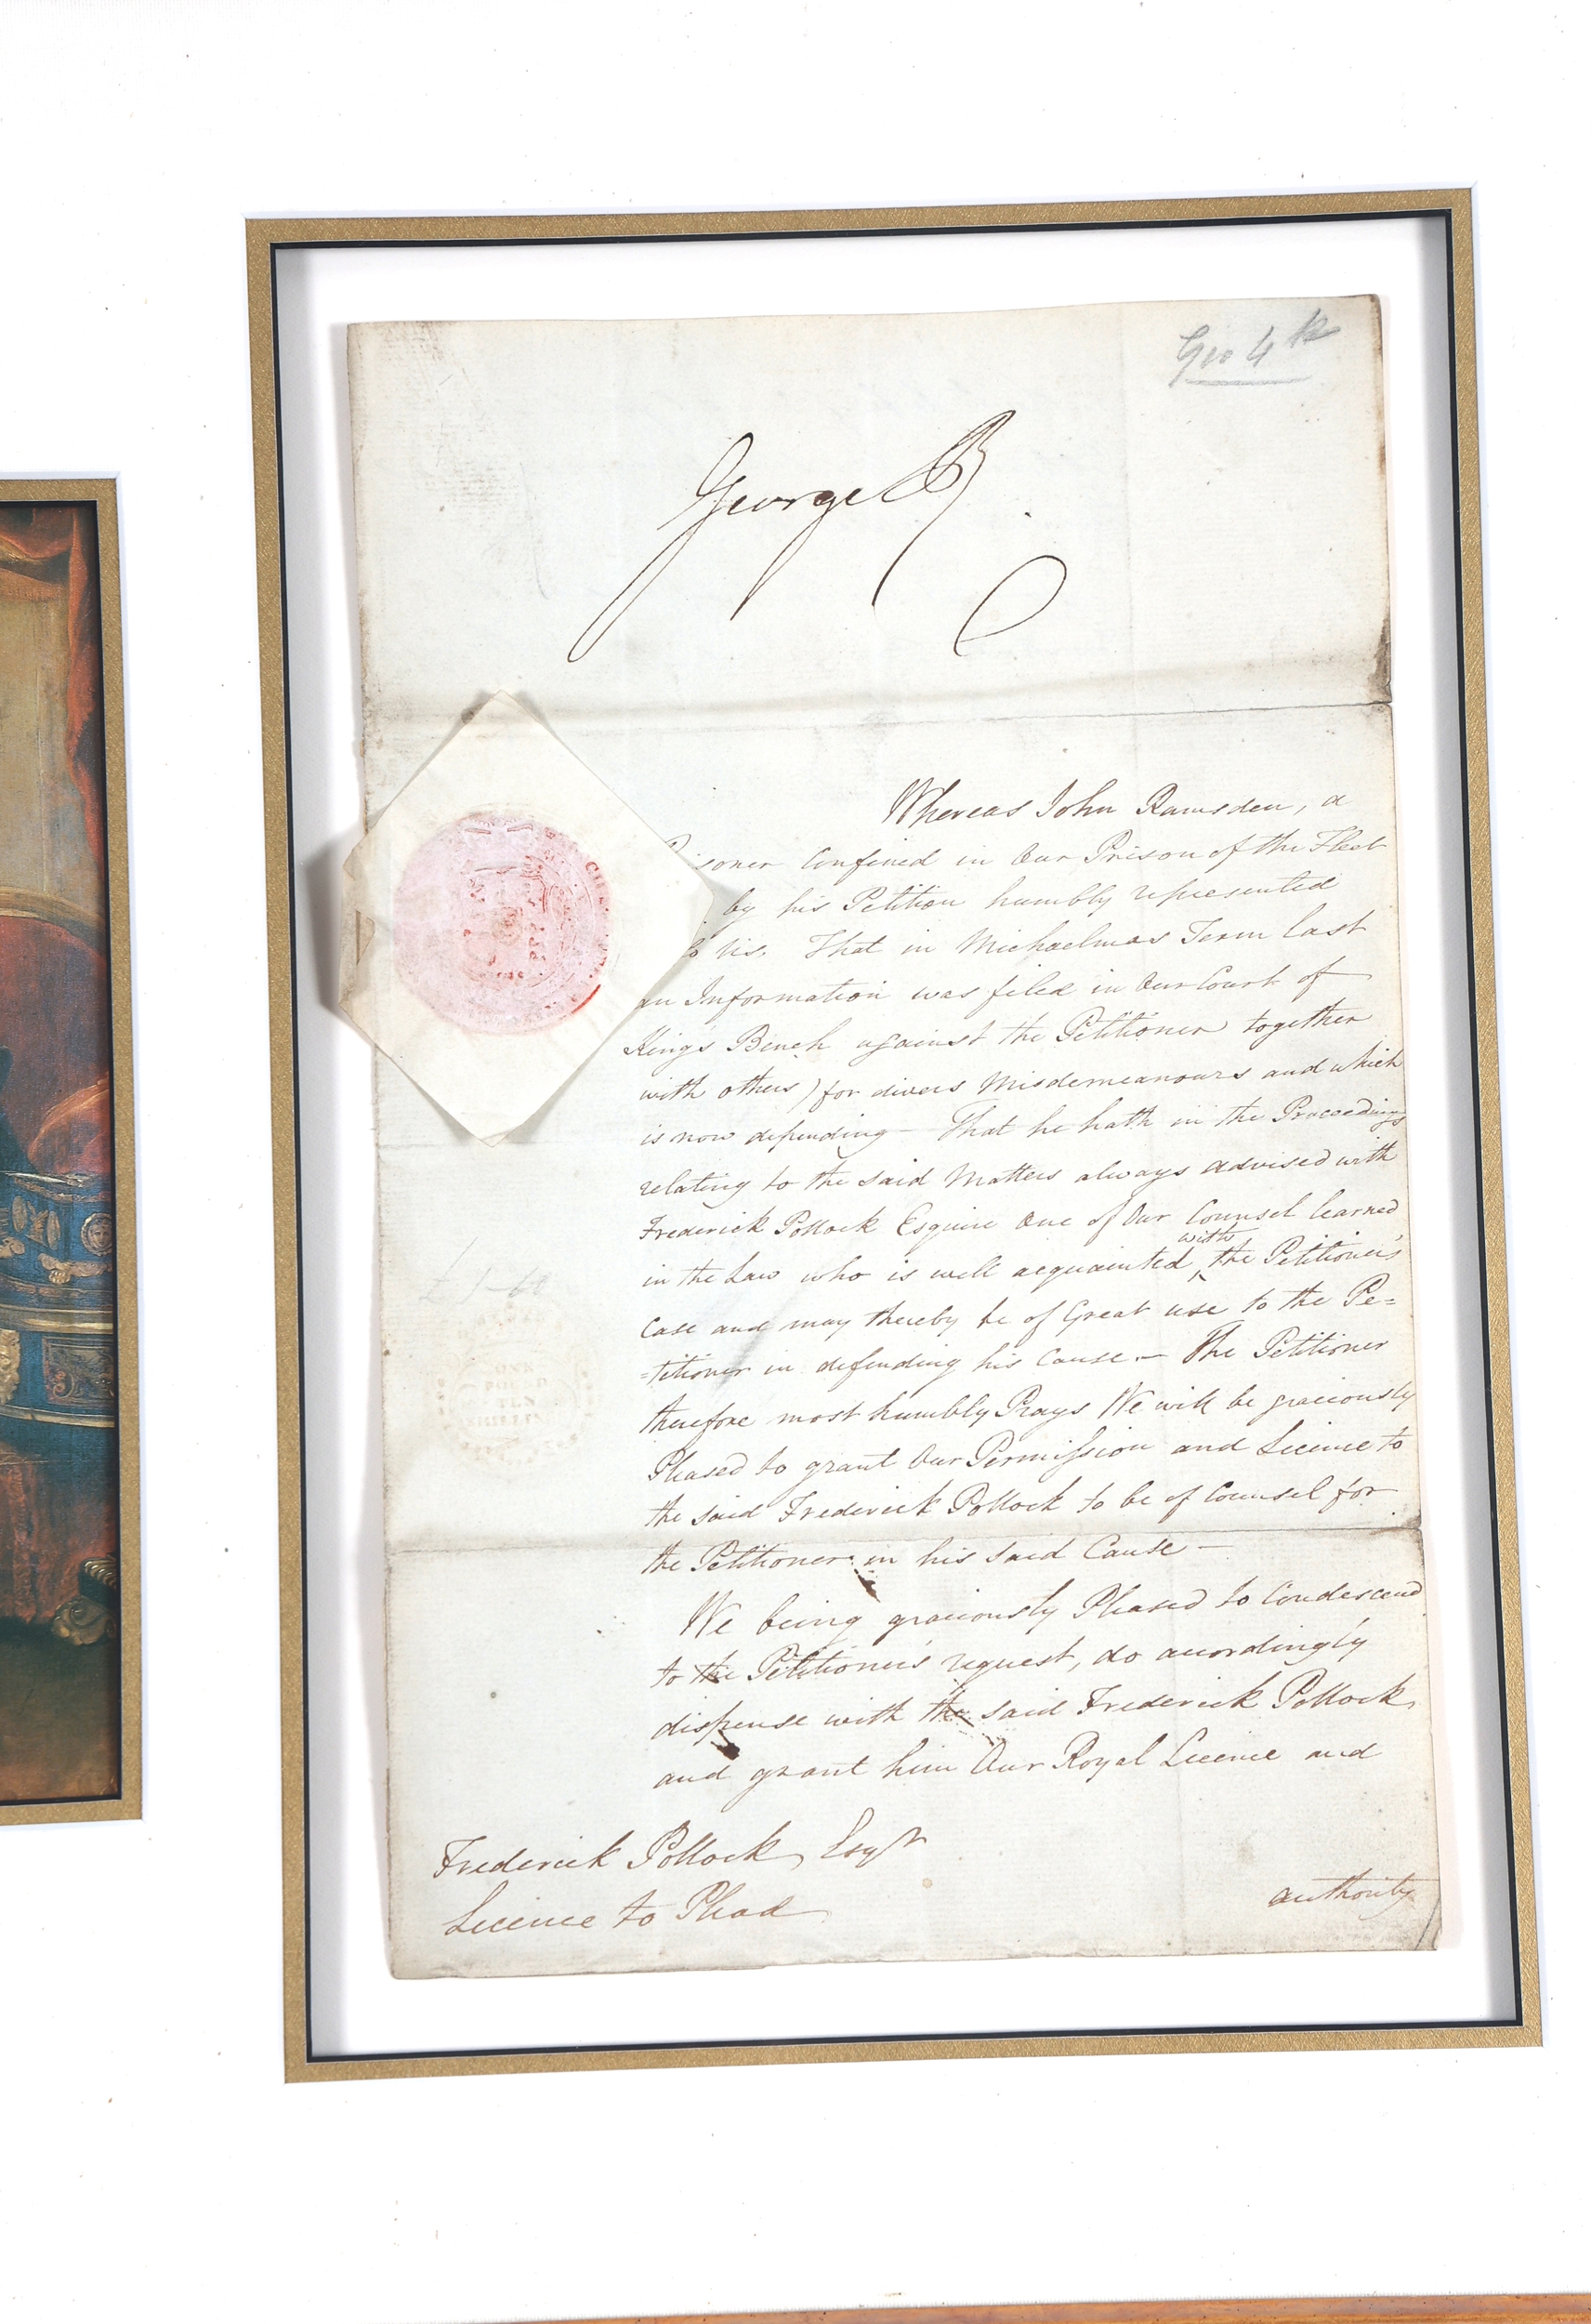 Geo 4th
George R
Whereas John Ramsden, a
Prisoner Confined in Our Prison of the Fleet
by his Petition humbly represented
to Us, That in Michaelmas Term last
an Information was filed in Our Court of
King's Bench against the Petitioner together
with others) for divers Misdemeanours and which
is now depending — That he hath in the Proceedings
relating to the said Matters always advised with
Frederick Pollock Esquire One of Our Counsel learned
in the Law who is well acquainted with the Petitioner's
Case and may thereby be of Great use to the Pe=
=titioner in defending his Cause. — The Petitioner
therefore most humbly Prays We will be graciously
Pleased to grant Our Permission and Licence to
the said Frederick Pollock to be of Counsel for
the Petitioner in his said Cause —
We being graciously Pleased to Condescend
to the Petitioner's request, do accordingly
dispense with the said Frederick Pollock,
and grant him Our Royal Licence and
authority
Frederick Pollock, Esqr
Licence to Plead
TEN